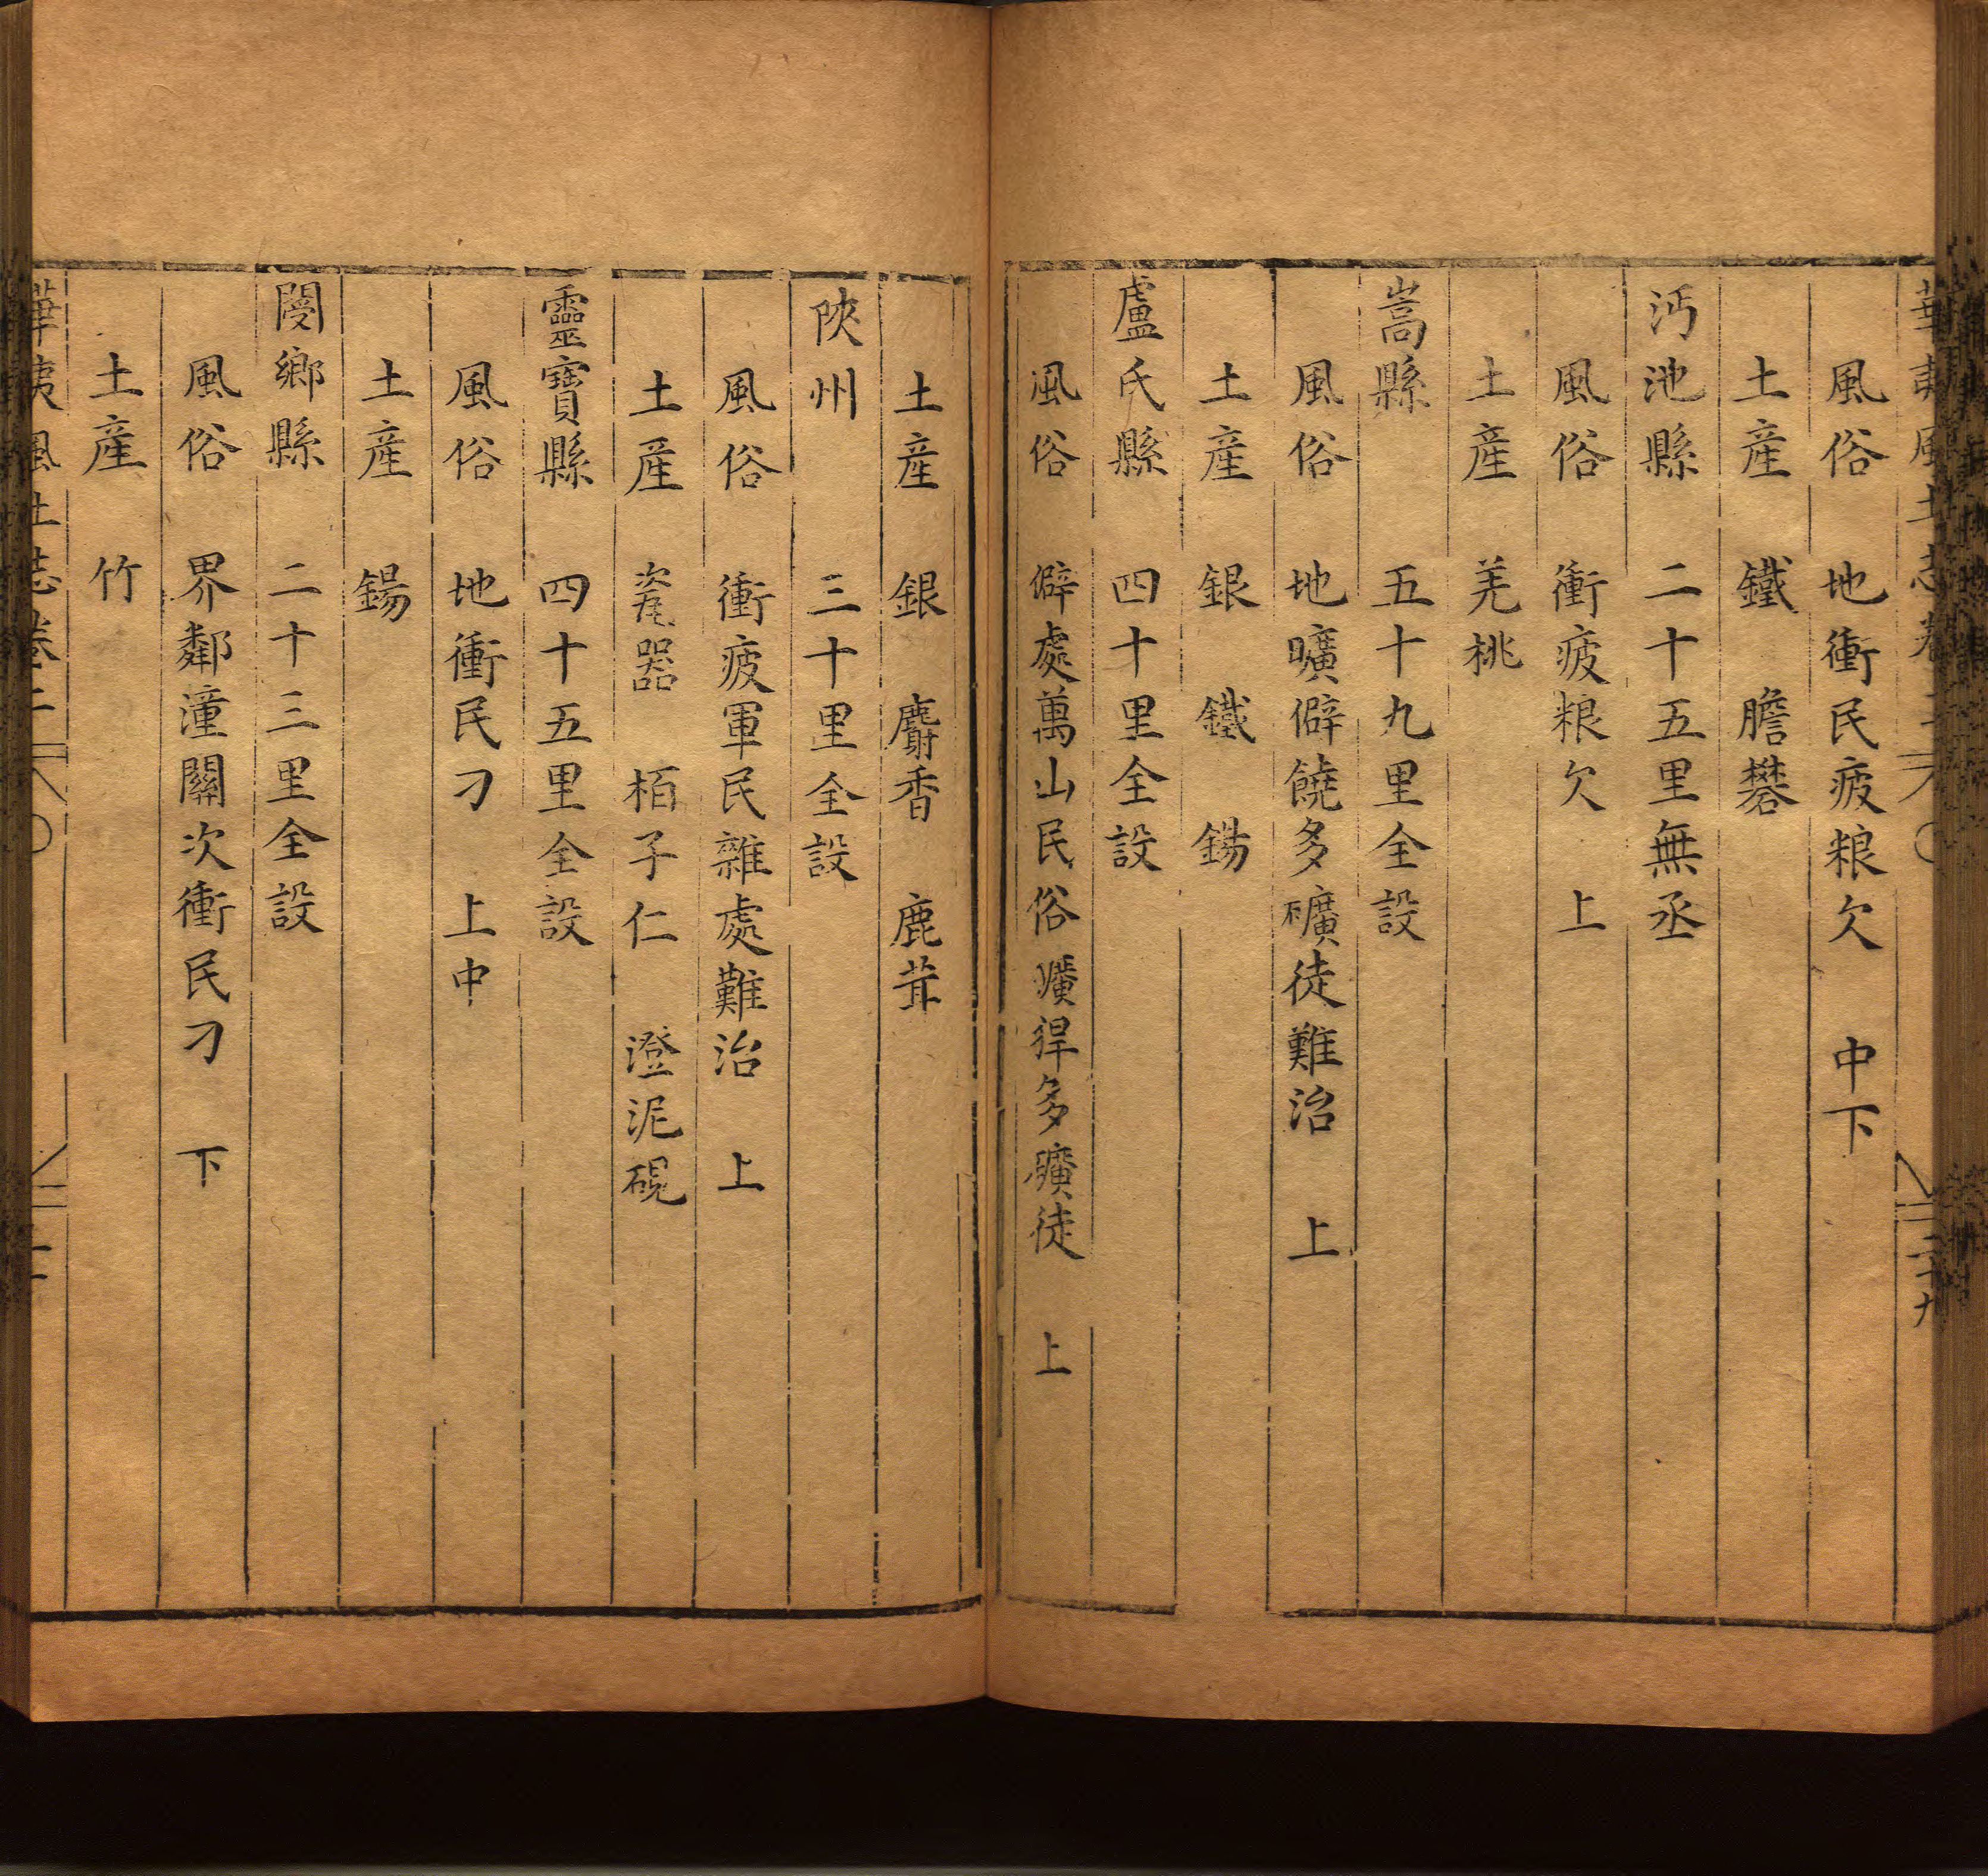 華夷風土志卷二 二十九
風俗 地衝民疲粮欠 中下
土産 鐵 膽礬
沔池縣 二十五里無丞
風俗 衝疲粮欠 上
土産 羌桃
嵩縣 五十九里全設
風俗 地曠僻饒多礦徒難治 上
土産 銀 鐵 錫
盧氏縣 四十里全設
風俗 僻處萬山民俗獷猂多礦徒 上
土産 銀 麝香 鹿茸
陝州 三十里全設
風俗 衝疲軍民雜處難治 上
土産 瓷器 栢子仁 澄泥硯
靈寶縣 四十五里全設
風俗 地衝民刁 上中
土産 錫
閿鄉縣 二十三里全設
風俗 界鄰潼關次衝民刁 下
土産 竹
華夷風土志卷二